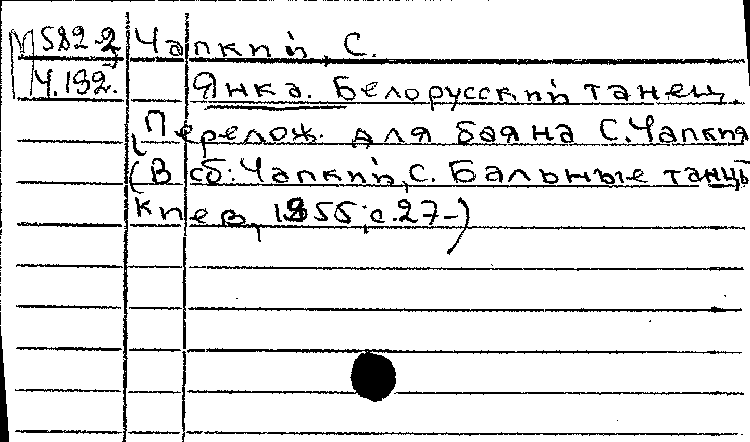 М582-2 Чапкий, С.
Ч.192. Янка. Белорусский танец.
Перелож. для баяна С. Чапкия
(В сб: Чапкий, С. Бальные танцы
Киев, 1955, с. 27-)